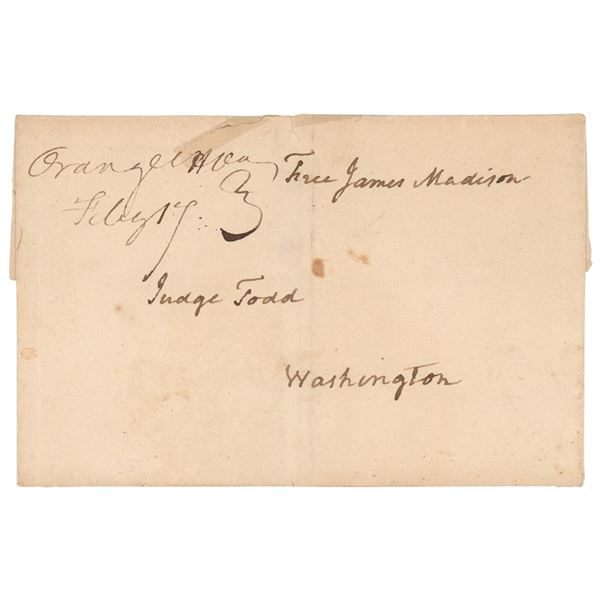 Orange CH Va
Feby 17.
Free James Madison
Judge Todd
Washington